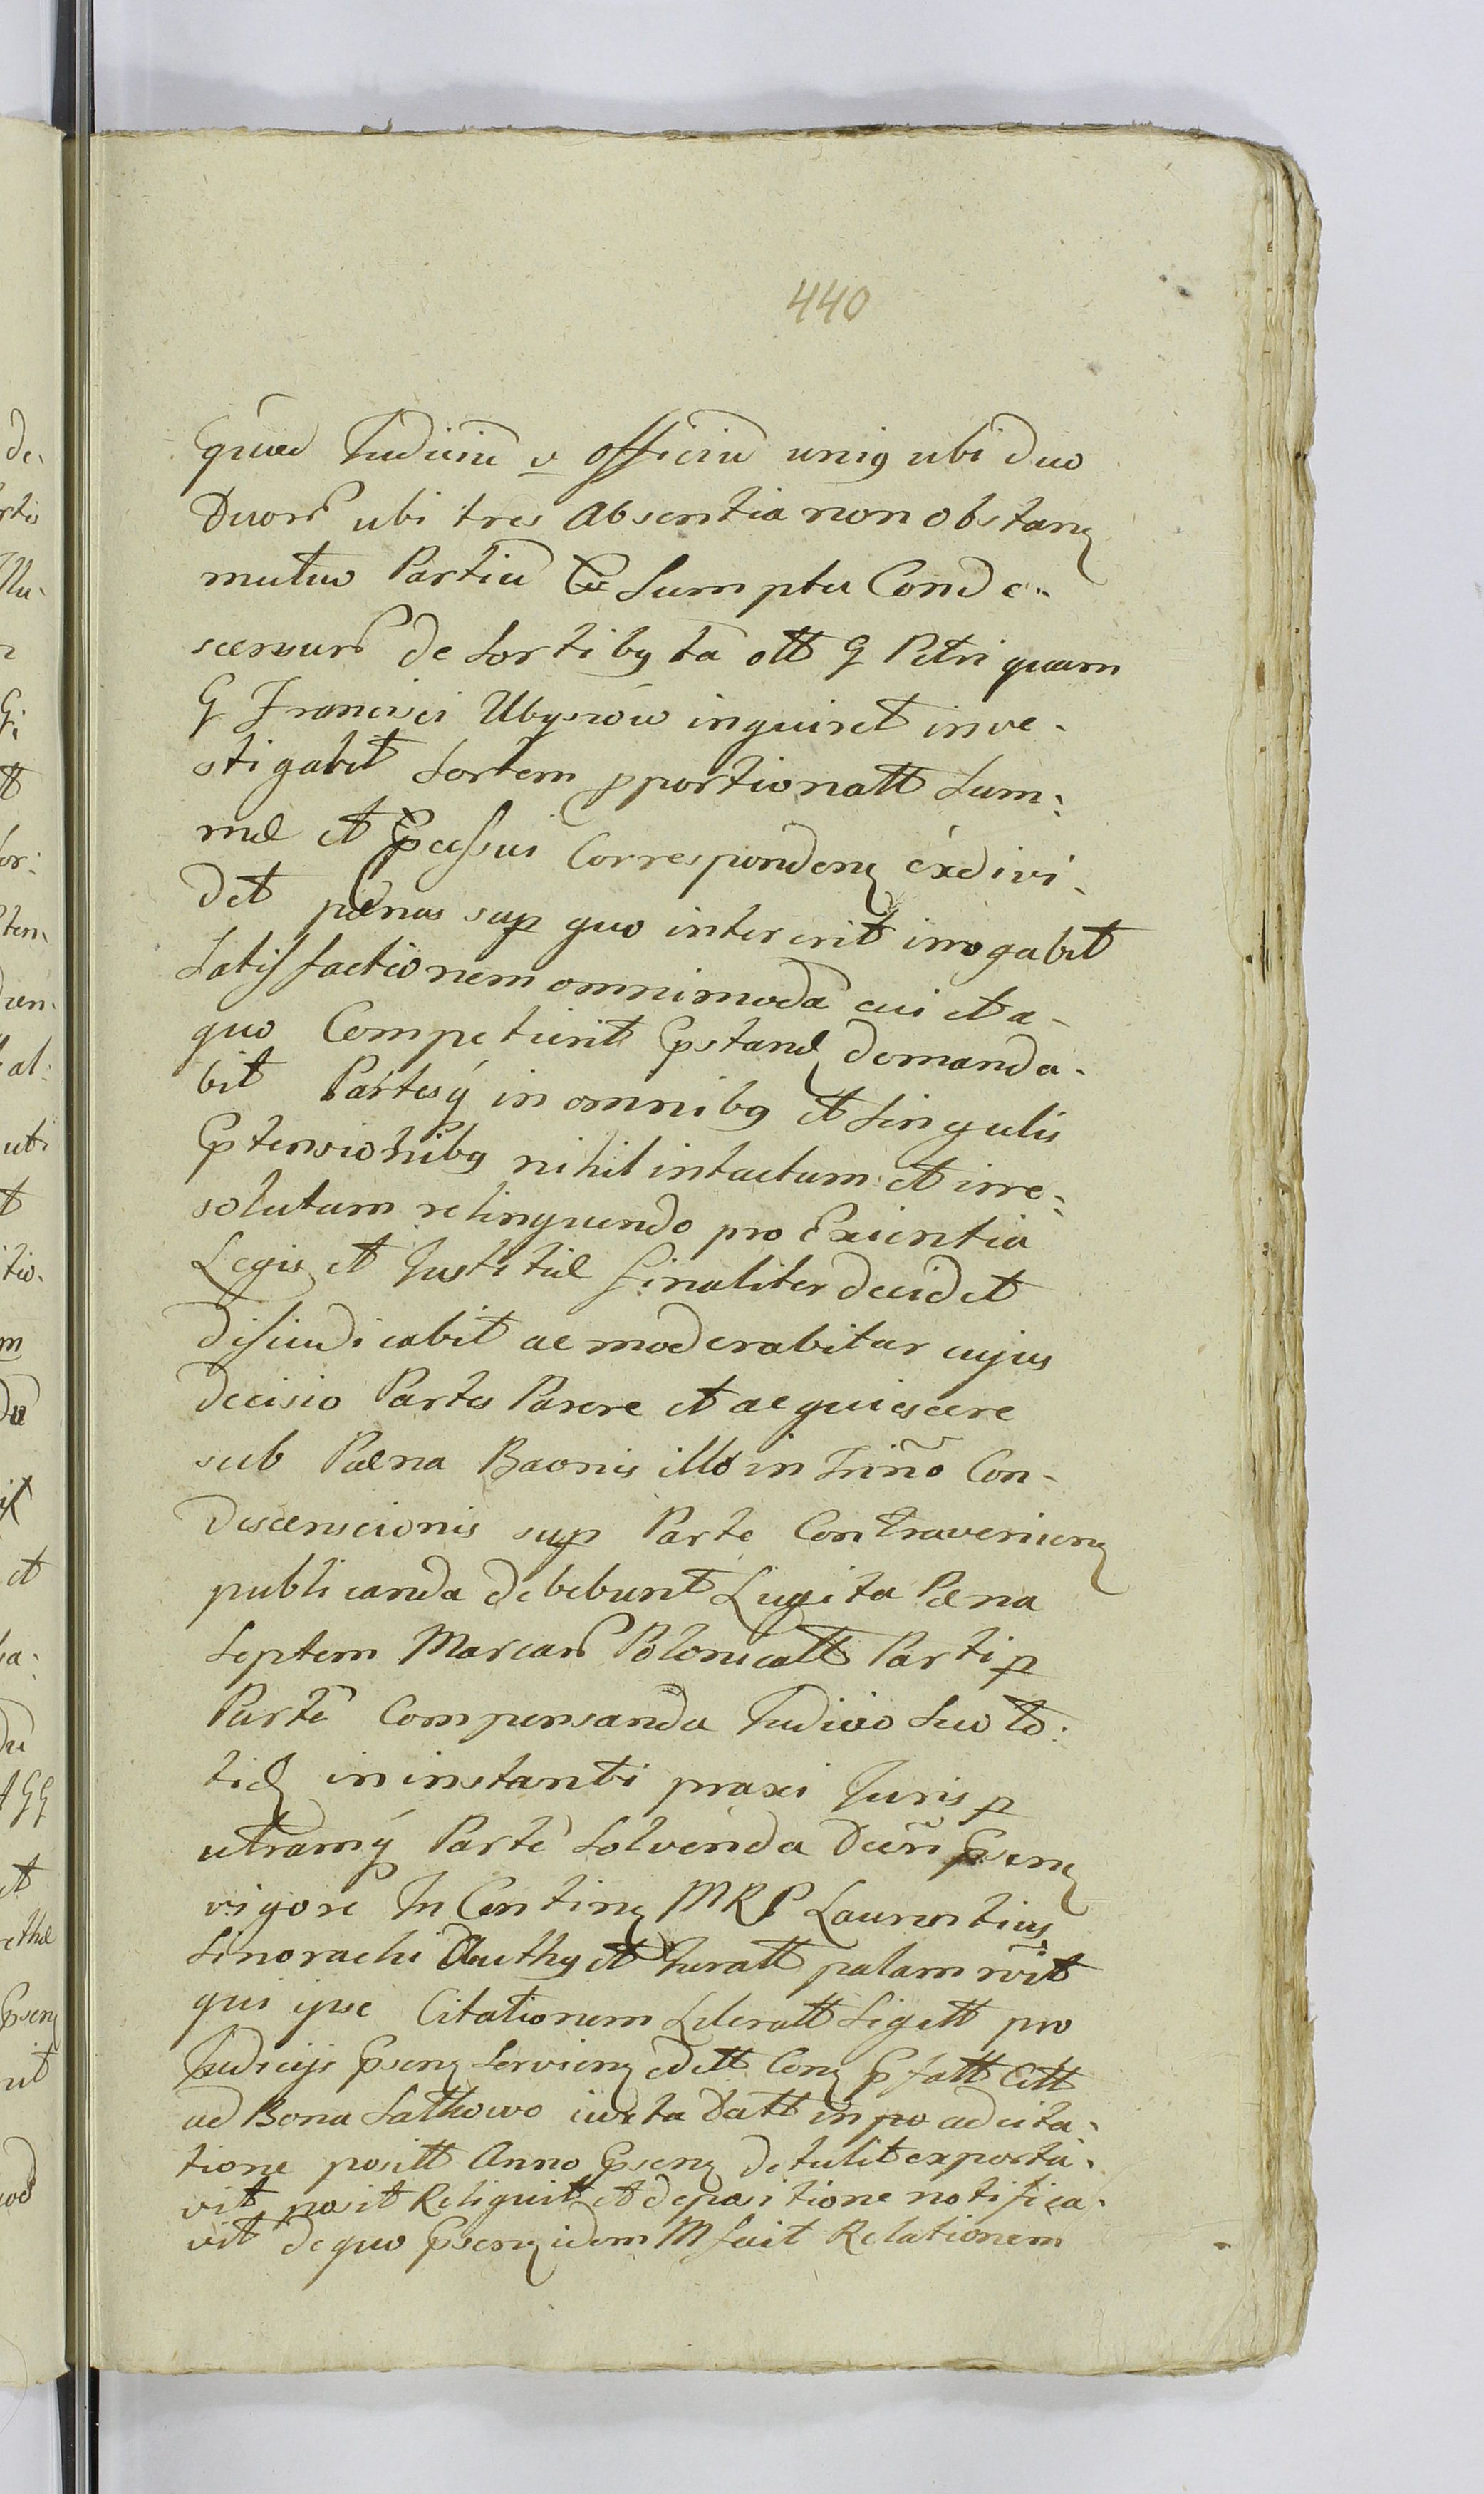 440
quod Judiciũ v Officiũ uniꝰ ubi duo
Duorũ ubi tres Absentia non obstanꝫ
mutuo Partiũ Sumptu Conde:
scensurũ de Sortibꝰ tã ott G Petri quam
G Francisci Ubyszów inquiret inve-
stigabit Sortem pportionatt Sum:
mæ et Pcessui Correspondenꝫ exdivi-
det pænas sup quo intererit irrogabit
Satisfactionem omnimodã cui et a-
quo Competierit Pstandꝫ demanda-
bit Partesqꝫ in omnibꝰ et Singulis
Ptensionibꝰ nihil intactum et irre:
solutum relinquendo pro Exientia
Legis et Justitiæ finaliter decidet
disiudicabit ac moderabitur cujus
Decisio Partes Parere et acquiescere
sub Pæna Baonis illo in Trĩno Con-
descensionis sup Parte Contravenienꝫ
publicanda debebunt Lugita Pæna
Septem Marcarũ Polonicatt Parti p
Partẽ Compensanda Judicio Suo to:
tidꝫ in instanti praxi Juris p
utramqꝫ Partẽ Solvenda Decři Psenꝫ
vigore In Continꝫ MRP Laurentius
Authꝰ et Juratt palam rẽvit
qui ipse Citationem Literatt Sigett pro
Judicijs Psenꝫ Servienꝫ edtt Conꝫ Pfatt Citt
ad Bona Sathowo iuxta Datt in po ad cita:
tione positt Anno Psenꝫ detulit exporta:
vit posit Reliquit et depositione notifica:
vit de quo Psenꝫ idem M fecit Relationem